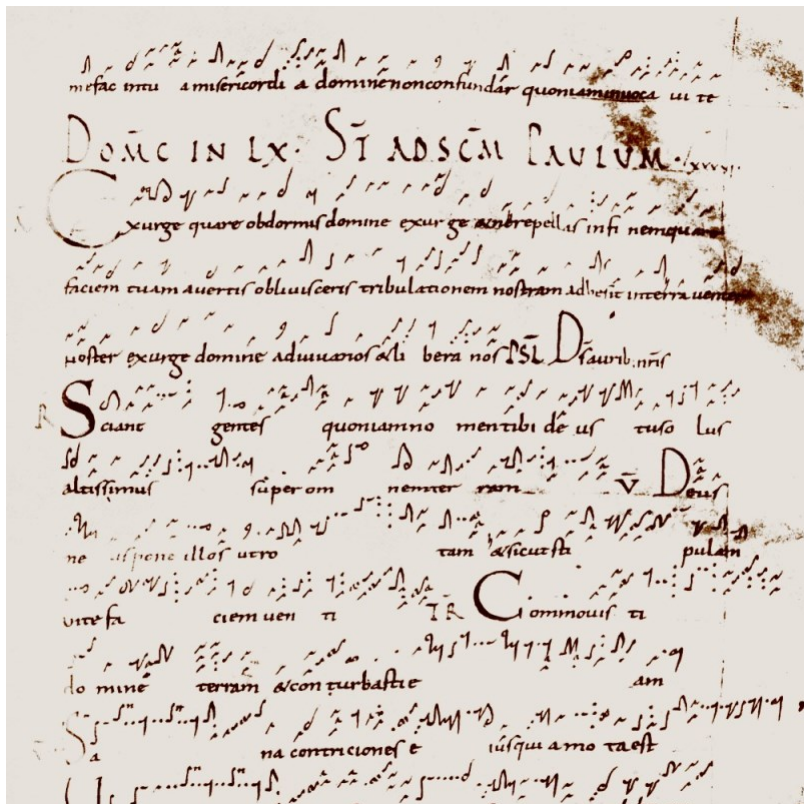 me fac in tu a misericordi a domine non confundar quoniam inuoca ui te
DOM̄C IN LX. S̄T̄ AD SC̄M PAULUM. lxxxxi.
Exurge quare obdormis domine exurge & ne repellas in fi nem quare
faciem tuam auertis obliuisceris tribulationem nostram adhesit in terra uenter
noster exurge domine adiuua nos & li bera nos PSL D̄s aurib. nr̄is
R Sciant gentes quoniam no men tibi de us tu so lus
altissimus super om nem ter ram V̄ Deus
ne us pone illos ut ro tam & sicut sti pulam
uite fa ciem uen ti TR̄ Commouis ti
do mine terram & con turbasti e am
Sa na contriciones e ius qui a mo ta est